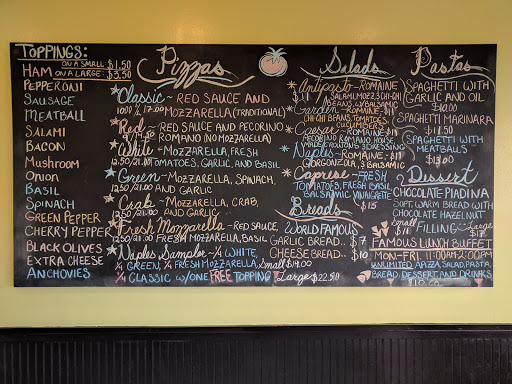 TOPPINGS:
ON A SMALL: $1.50
ON A LARGE: $3.50
HAM
PEPPERONI
SAUSAGE
MEATBALL
SALAMI
BACON
MUSHROOM
ONION
BASIL
SPINACH
GREEN PEPPER
CHERRY PEPPER
BLACK OLIVES
EXTRA CHEESE
ANCHOVIES
Pizzas
Classic - RED SAUCE AND
MOZZARELLA (TRADITIONAL)
Red - RED SAUCE AND PECORINO
ROMANO (NO MOZZARELLA)
White - MOZZARELLA, FRESH
TOMATOES, GARLIC, AND BASIL
Green - MOZZARELLA, SPINACH,
AND GARLIC
Crab - MOZZARELLA, CRAB,
AND GARLIC
Fresh Mozzarella - RED SAUCE,
FRESH MOZZARELLA, BASIL
Naples Sampler - 1/4 WHITE,
1/4 GREEN, 1/4 FRESH MOZZARELLA,
1/4 CLASSIC W/ONE FREE TOPPING
Small $19.00
Large $22.50
Salads
Antipasto - ROMAINE,
Garden - ROMAINE,
CUCUMBERS
Caesar - ROMAINE
Naples - ROMAINE,
GORGONZOLA, BALSAMIC
Caprese - FRESH
TOMATOES, FRESH BASIL
BALSAMIC VINAIGRETTE
$15
Breads
WORLD FAMOUS
GARLIC BREAD.. $7
CHEESE BREAD.. $10
Pastas
SPAGHETTI WITH
GARLIC AND OIL
SPAGHETTI MARINARA
$11.50
SPAGHETTI WITH
MEATBALLS
$13.00
Dessert
CHOCOLATE PIADINA
SOFT, WARM BREAD WITH
CHOCOLATE HAZELNUT
FILLING
Small
Large
FAMOUS LUNCH BUFFET
MON-FRI 11:00AM-2:00PM
UNLIMITED APIZZA, SALAD, PASTA,
BREAD, DESSERT, AND DRINKS